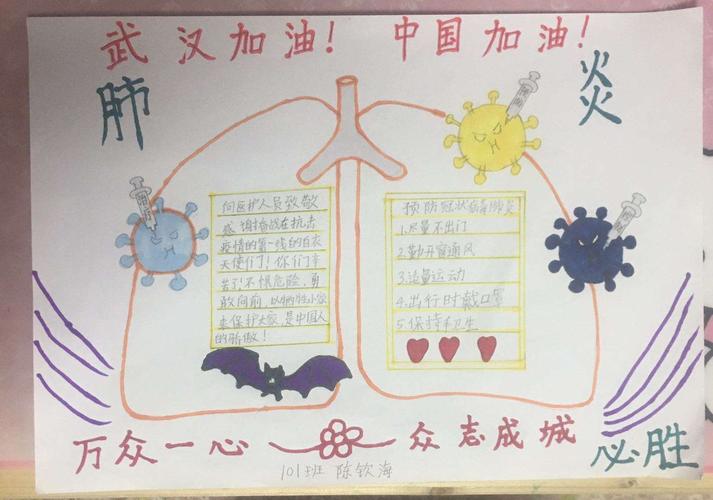 武汉加油！ 中国加油！
肺
炎
向医护人员致敬
感谢奋战在抗击
疫情的第一线的白衣
天使们！你们辛
苦了！不惧危险，勇
敢向前，以牺牲小家
来保护大家，是中国人
的骄傲！
预防冠状病毒肺炎
1.尽量不出门
2.勤开窗通风
3.适量运动
4.出行时戴口罩
5.保持卫生
万众一心 众志成城
必胜
101班 陈钦海